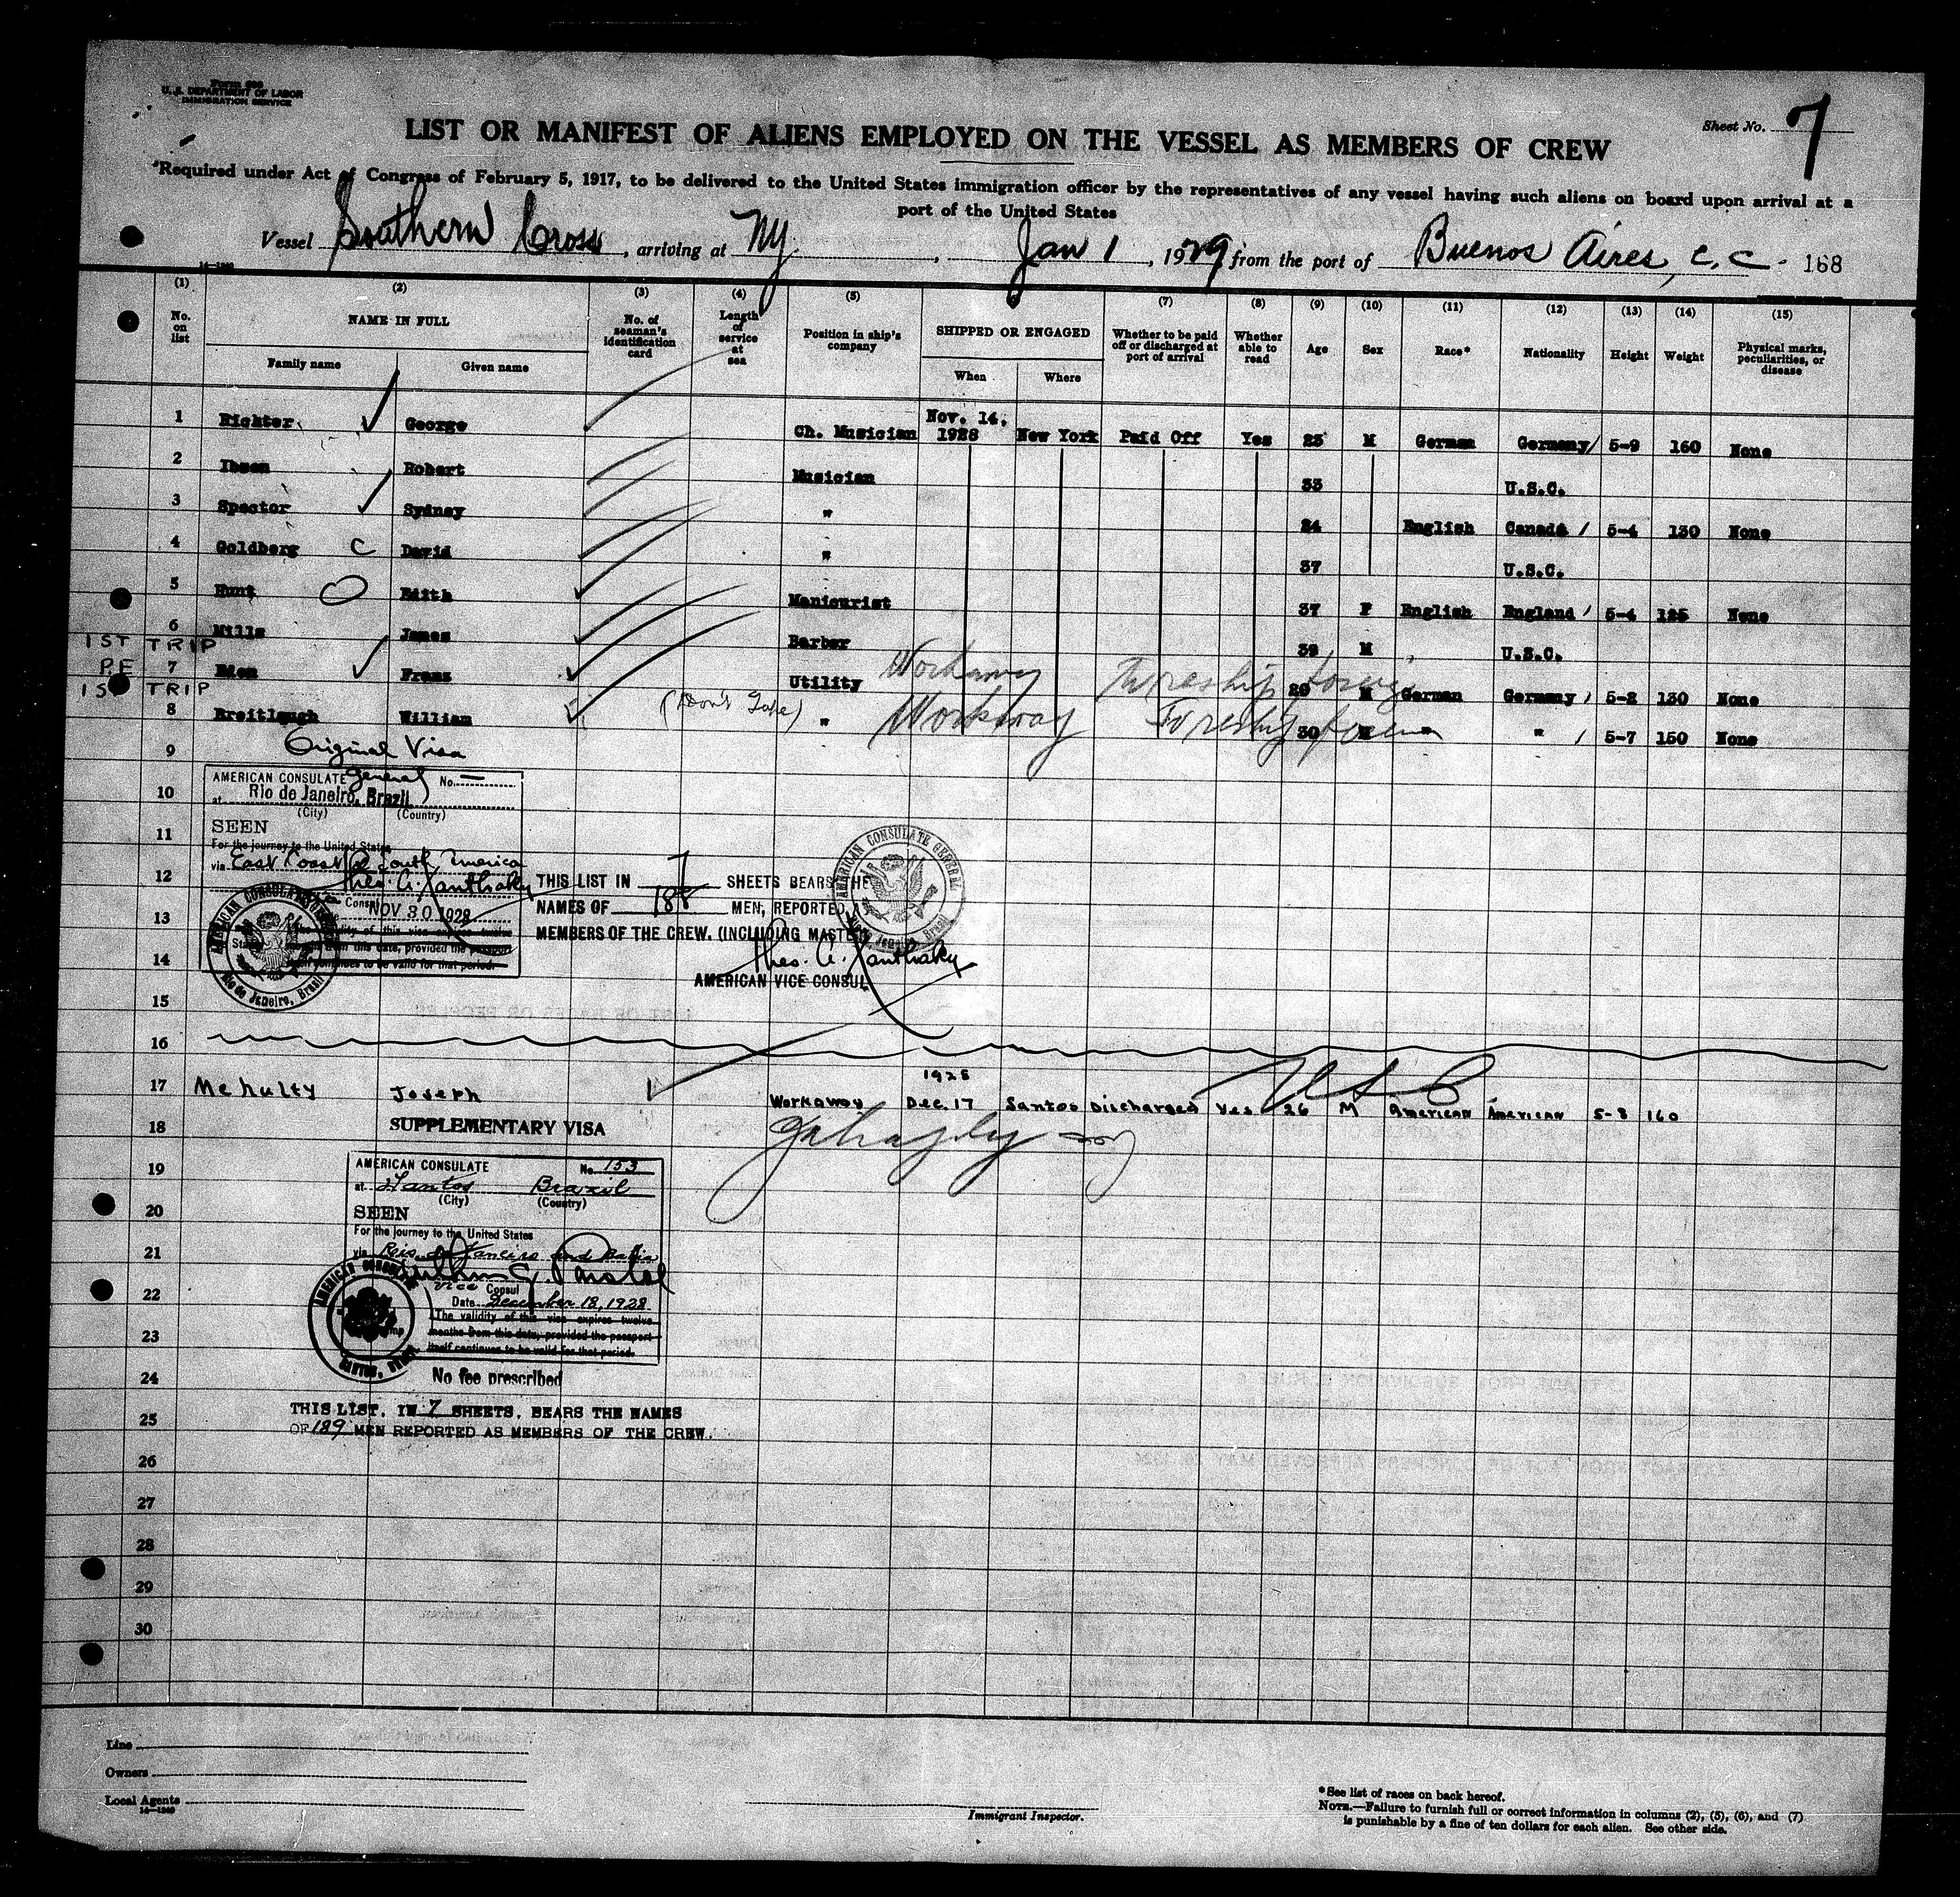 Form 689
U. S. DEPARTMENT OF LABOR
IMMIGRATION SERVICE
Sheet No. 7
LIST OR MANIFEST OF ALIENS EMPLOYED ON THE VESSEL AS MEMBERS OF CREW
Required under Act of Congress of February 5, 1917, to be delivered to the United States immigration officer by the representatives of any vessel having such aliens on board upon arrival at a
port of the United States
Vessel Southern Cross, arriving at NY, Jan 1, 1929 from the port of Buenos Aires, C. C. 168
14—1240
(1) (2) (3) (4) (5) 6 (7) (8) (9) (10) (11) (12) (13) (14) (15)
No. on list NAME IN FULL Family name Given name No. of seaman's identification card Length of service at sea Position in ship's company SHIPPED OR ENGAGED When Where Whether to be paid off or discharged at port of arrival Whether able to read Age Sex Race* Nationality Height Weight Physical marks, peculiarities, or disease
1 Richter George Ch. Musician Nov. 14, 1928 New York Paid Off Yes 25 M German Germany 5-9 160 None
2 Ibsen Robert Musician 33 U.S.C.
3 Spector Sydney " 24 English Canada 5-4 130 None
4 Goldberg C David " 37 U.S.C.
5 Hunt Edith Manicurist 37 F English England 5-4 125 None
6 Mills James Barber 39 M U.S.C.
1ST TRIP
P.E 7 Franz Utility Workaway 20 M German Germany 5-2 130 None
1ST TRIP
8 Breitlaugh William (Don't Take) " Workaway 30 M " " 5-7 150 None
9 Original Visa
10 AMERICAN CONSULATE General No. —
at Rio de Janeiro, Brazil
(City) (Country)
11 SEEN
For the journey to the United States
via East Coast of South America
12 Theo. A. Xanthaky
Consul
13 NOV 30 1928
The validity of this visa expires twelve
months from this date, provided the passport
14 itself continues to be valid for that period.
AMERICAN CONSULATE GENERAL
Rio de Janeiro, Brazil
THIS LIST IN 7 SHEETS BEARS THE
NAMES OF 188 MEN, REPORTED
MEMBERS OF THE CREW. (INCLUDING MASTER
Theo. A. Xanthaky
AMERICAN VICE CONSUL
AMERICAN CONSULATE GENERAL
Rio de Janeiro, Brazil
15
16
17 McNulty Joseph Workaway 1928 Dec. 17 Santos Discharged Yes 26 M American American 5-8 160
USC
18 SUPPLEMENTARY VISA
19 AMERICAN CONSULATE No. 153
at Santos Brazil
(City) (Country)
20 SEEN
For the journey to the United States
21 via Rio de Janeiro and Bahia
Vice Consul
22 Date December 18, 1928
The validity of this visa expires twelve
23 months from this date, provided the passport
itself continues to be valid for that period.
AMERICAN CONSULATE
SANTOS, BRAZIL
24 No fee prescribed
25 THIS LIST, IN 7 SHEETS, BEARS THE NAMES
OF 189 MEN REPORTED AS MEMBERS OF THE CREW.
26
27
28
29
30
Line
Owners
Local Agents
14—1240
Immigrant Inspector.
*See list of races on back hereof.
NOTE.—Failure to furnish full or correct information in columns (2), (5), (6), and (7)
is punishable by a fine of ten dollars for each alien. See other side.